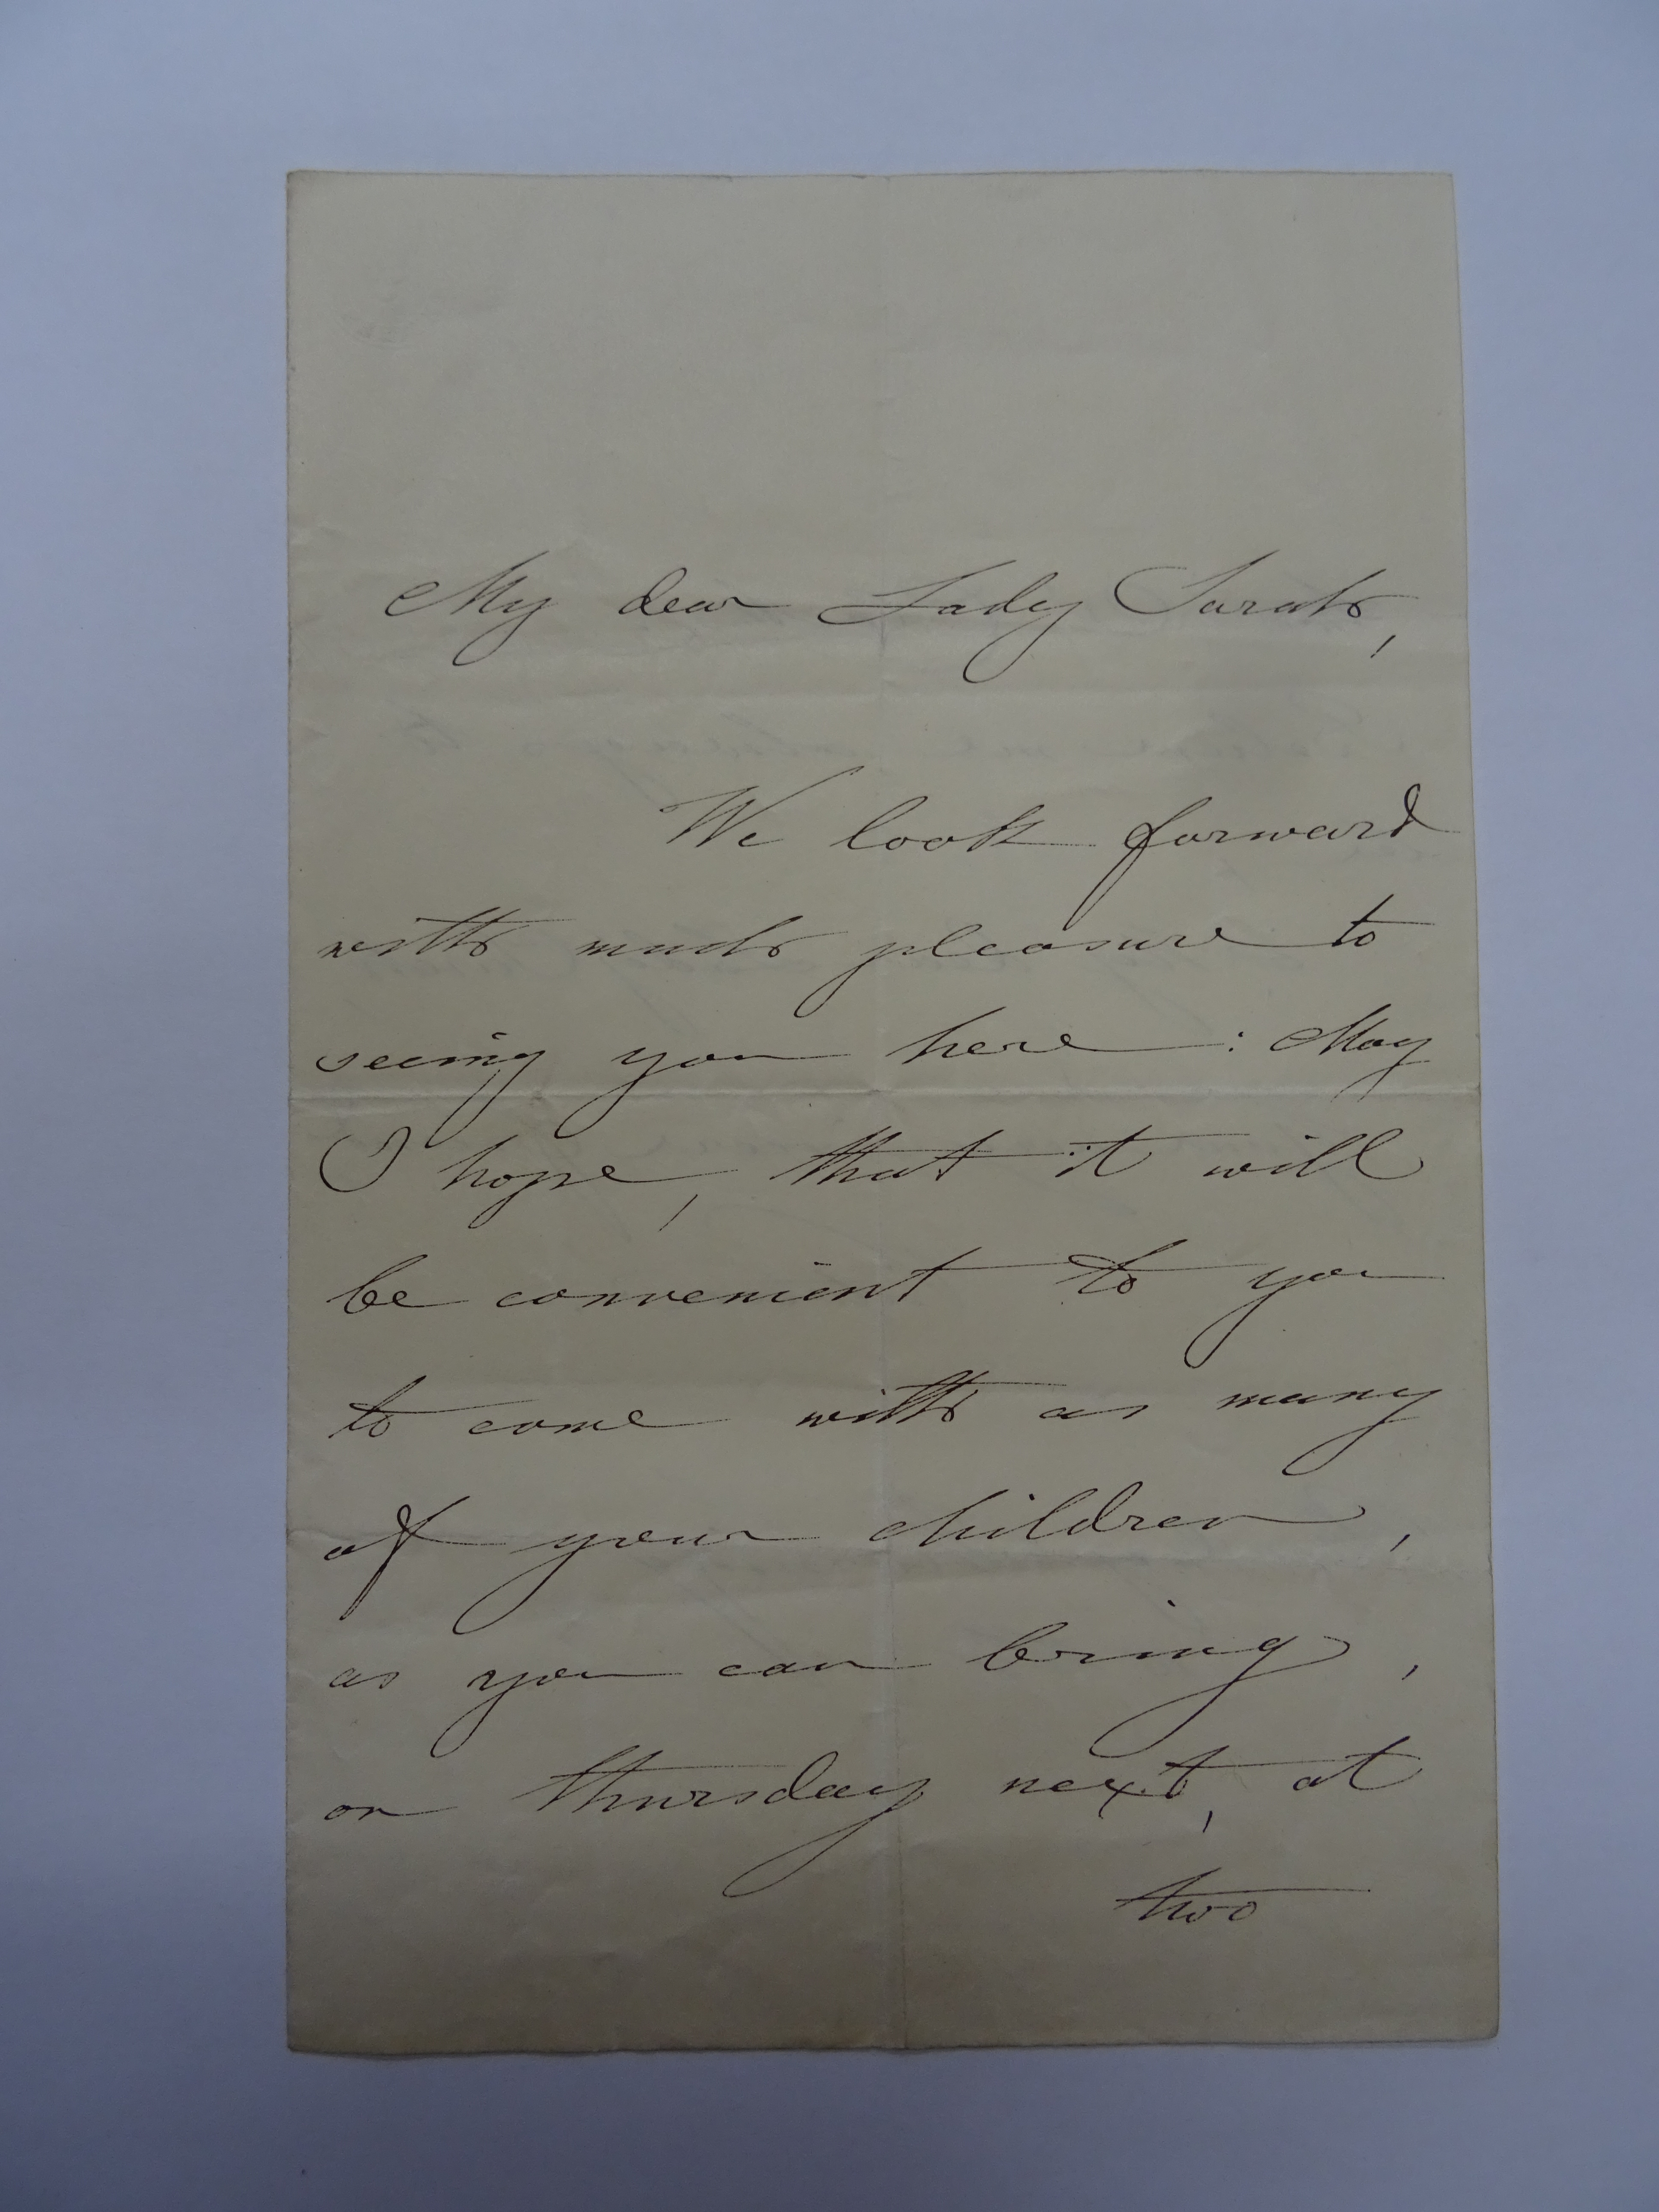 My dear Lady Sarah,
We look forward
with much pleasure to
seeing you here: May
I hope, that it will
be convenient to you
to come with as many
of your children,
as you can bring,
on thursday next, at
two